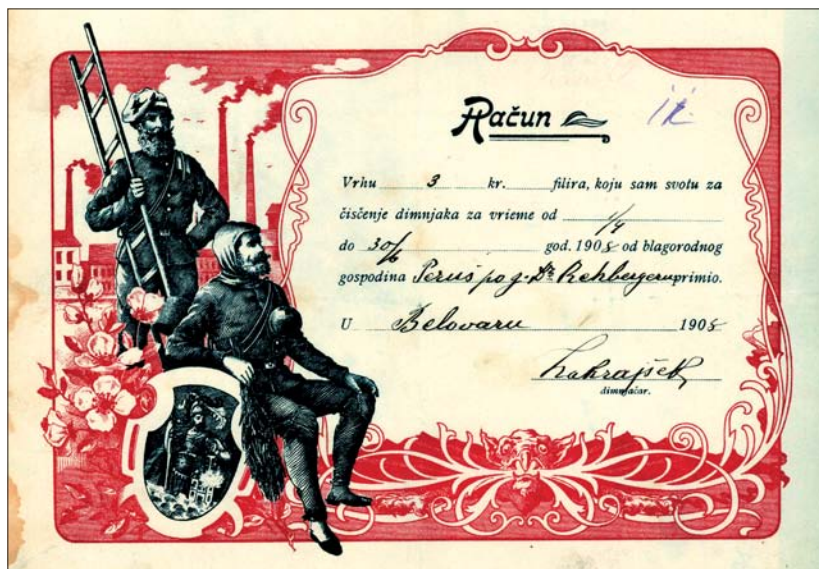 Račun
Vrhu 3 kr. filira, koju sam svotu za
čisčenje dimnjaka za vrieme od 1/4
do 30/6 god. 1908 od blagorodnog
gospodina Peruš po g. Dr Rehbergeru primio.
U Belovaru 1908
Lakrajšek
dimnjačar.